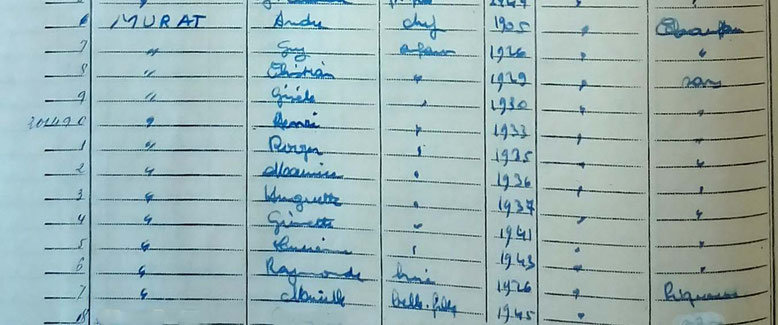 6 MURAT André chef 1905 " Chauffeur
7 " Guy enfant 1926 " "
8 " Christian " 1929 " sans
9 " Gisèle " 1930 " "
0 " Henri " 1933 " "
1 " Roger " 1935 " "
2 " Maurice " 1936 " "
3 " Huguette " 1937 " "
4 " Ginette " 1941 "
5 " " 1943 " "
6 " Raymonde 1926 "
7 " belle-fille 1945 "
8